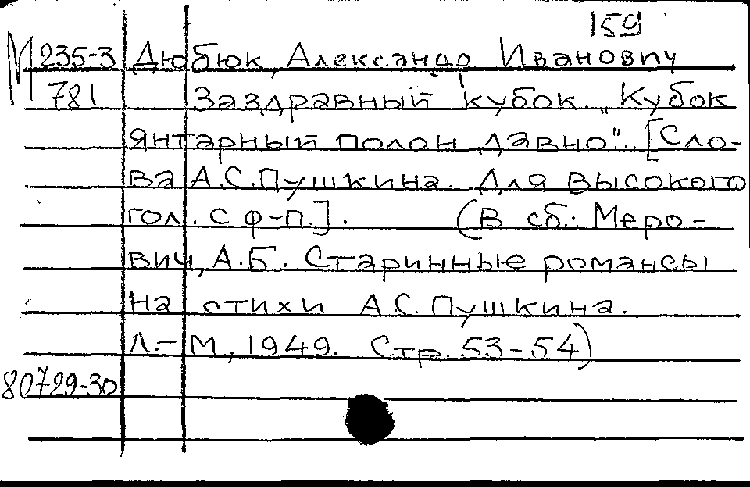 159
М 235-3 Дюбюк, Александр Иванович
781 Заздравный кубок. „Кубок
янтарный полон давно". [Сло-
ва А.С.Пушкина. Для высокого
гол. с ф-п.]. (В сб.: Меро-
вич, А.Б. Старинные романсы
на стихи А.С.Пушкина.
Л.-М., 1949. Стр. 53-54)
80729-30